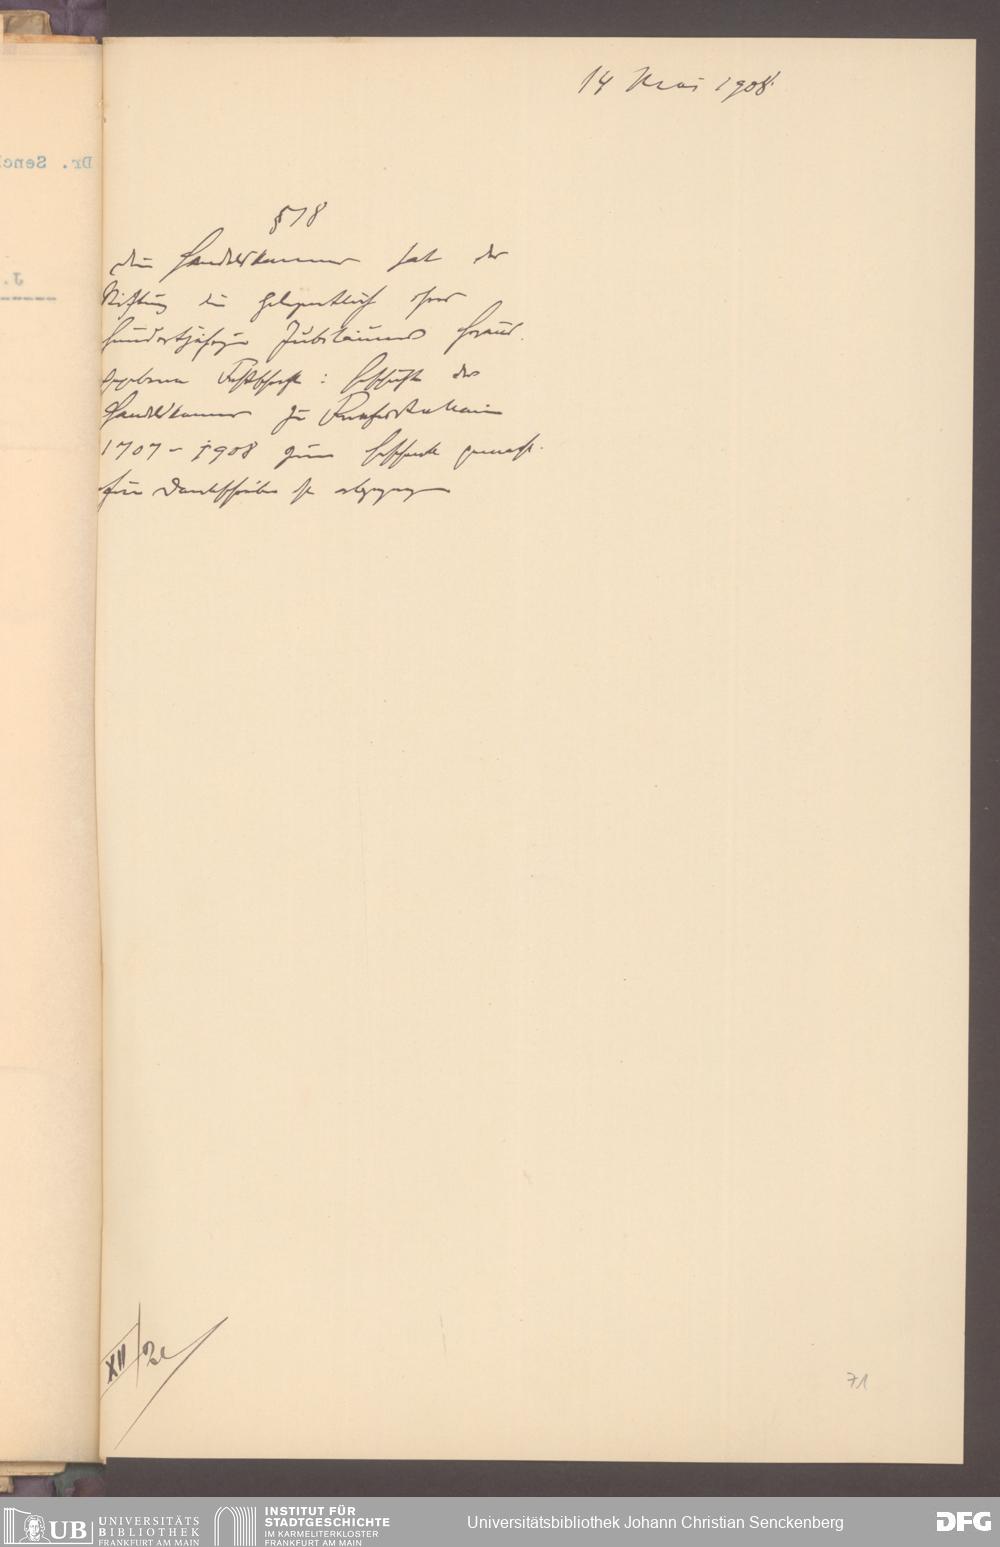 14 Mai 1908.
§ 78
Die Handelskammer hat der
Stiftung die gelegentlich ihres
hundertjährigen Jubiläums heraus-
gegebene Festschrift: Geschichte der
Handelskammer zu Frankfurt a Main
1707 - 1908 zum Geschenk gemacht.
Ein Dankschreiben ist abgegangen
XII
71
Dr. Senc
J.
UB
UNIVERSITÄTS
BIBLIOTHEK
FRANKFURT AM MAIN
INSTITUT FÜR
STADTGESCHICHTE
IM KARMELITERKLOSTER
FRANKFURT AM MAIN
Universitätsbibliothek Johann Christian Senckenberg
DFG